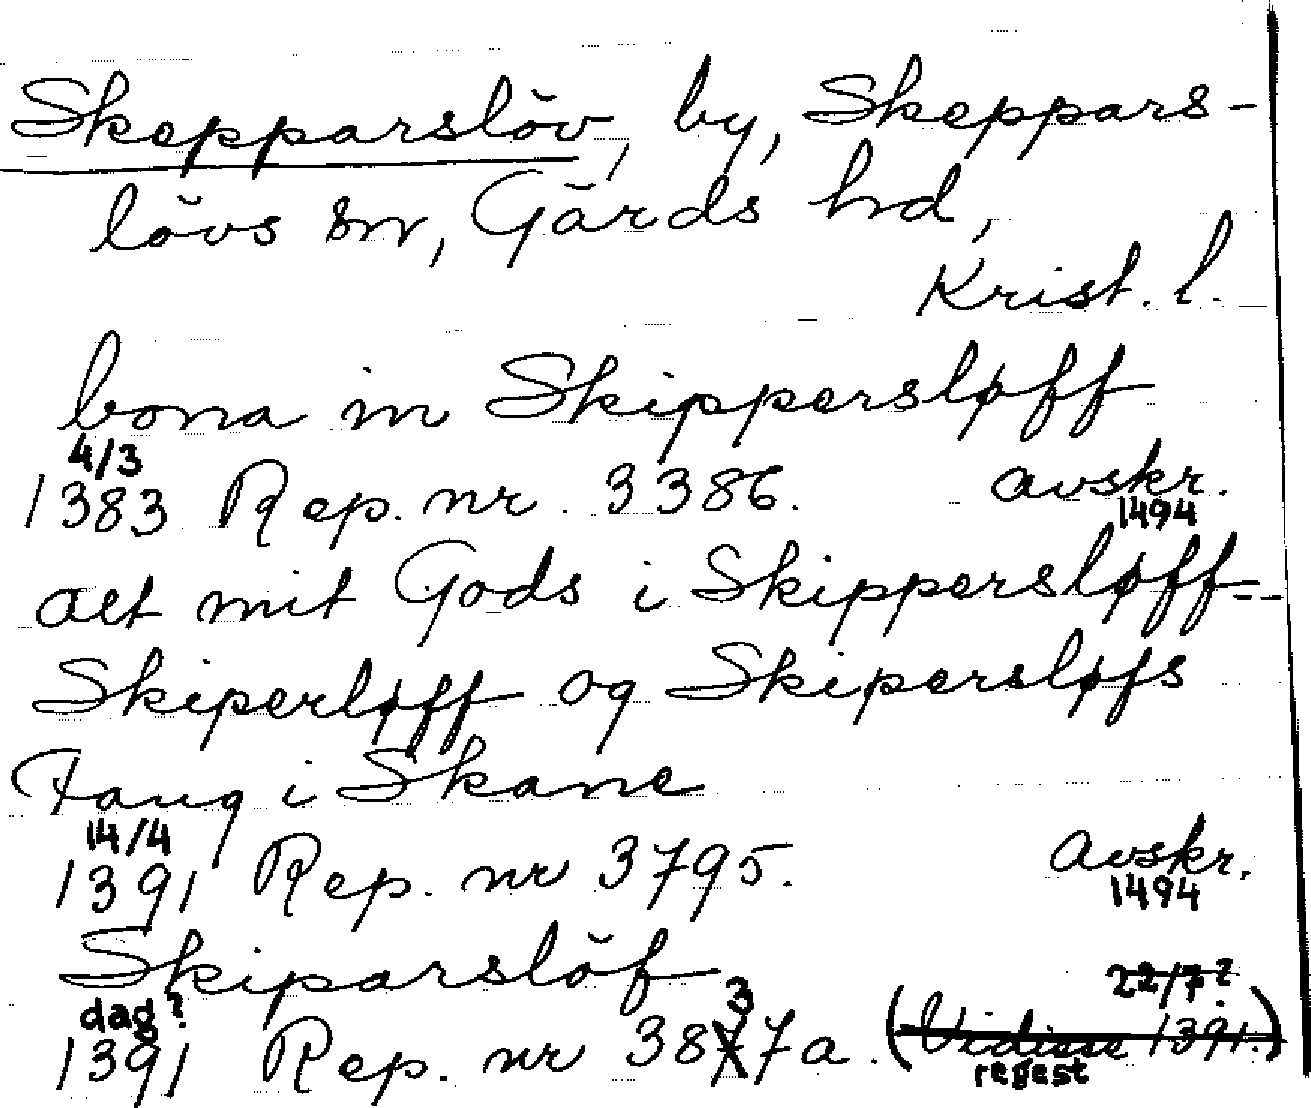 Skepparslöv, by, Skeppars-
lövs sn, Gärds hd,
Krist. l.
bona in Skippersløff
4/3
1383 Rep. nr. 3386. avskr.
1494
alt mit Gods i Skippersløff--
Skiperløff og Skipersløfs
Fang i Skane
14/4
1391 Rep. nr 3795. avskr.
1494
Skiparslöf
dag? 3 22/7?
1391 Rep. nr 3877a. (Vidisse 1391.)
regest